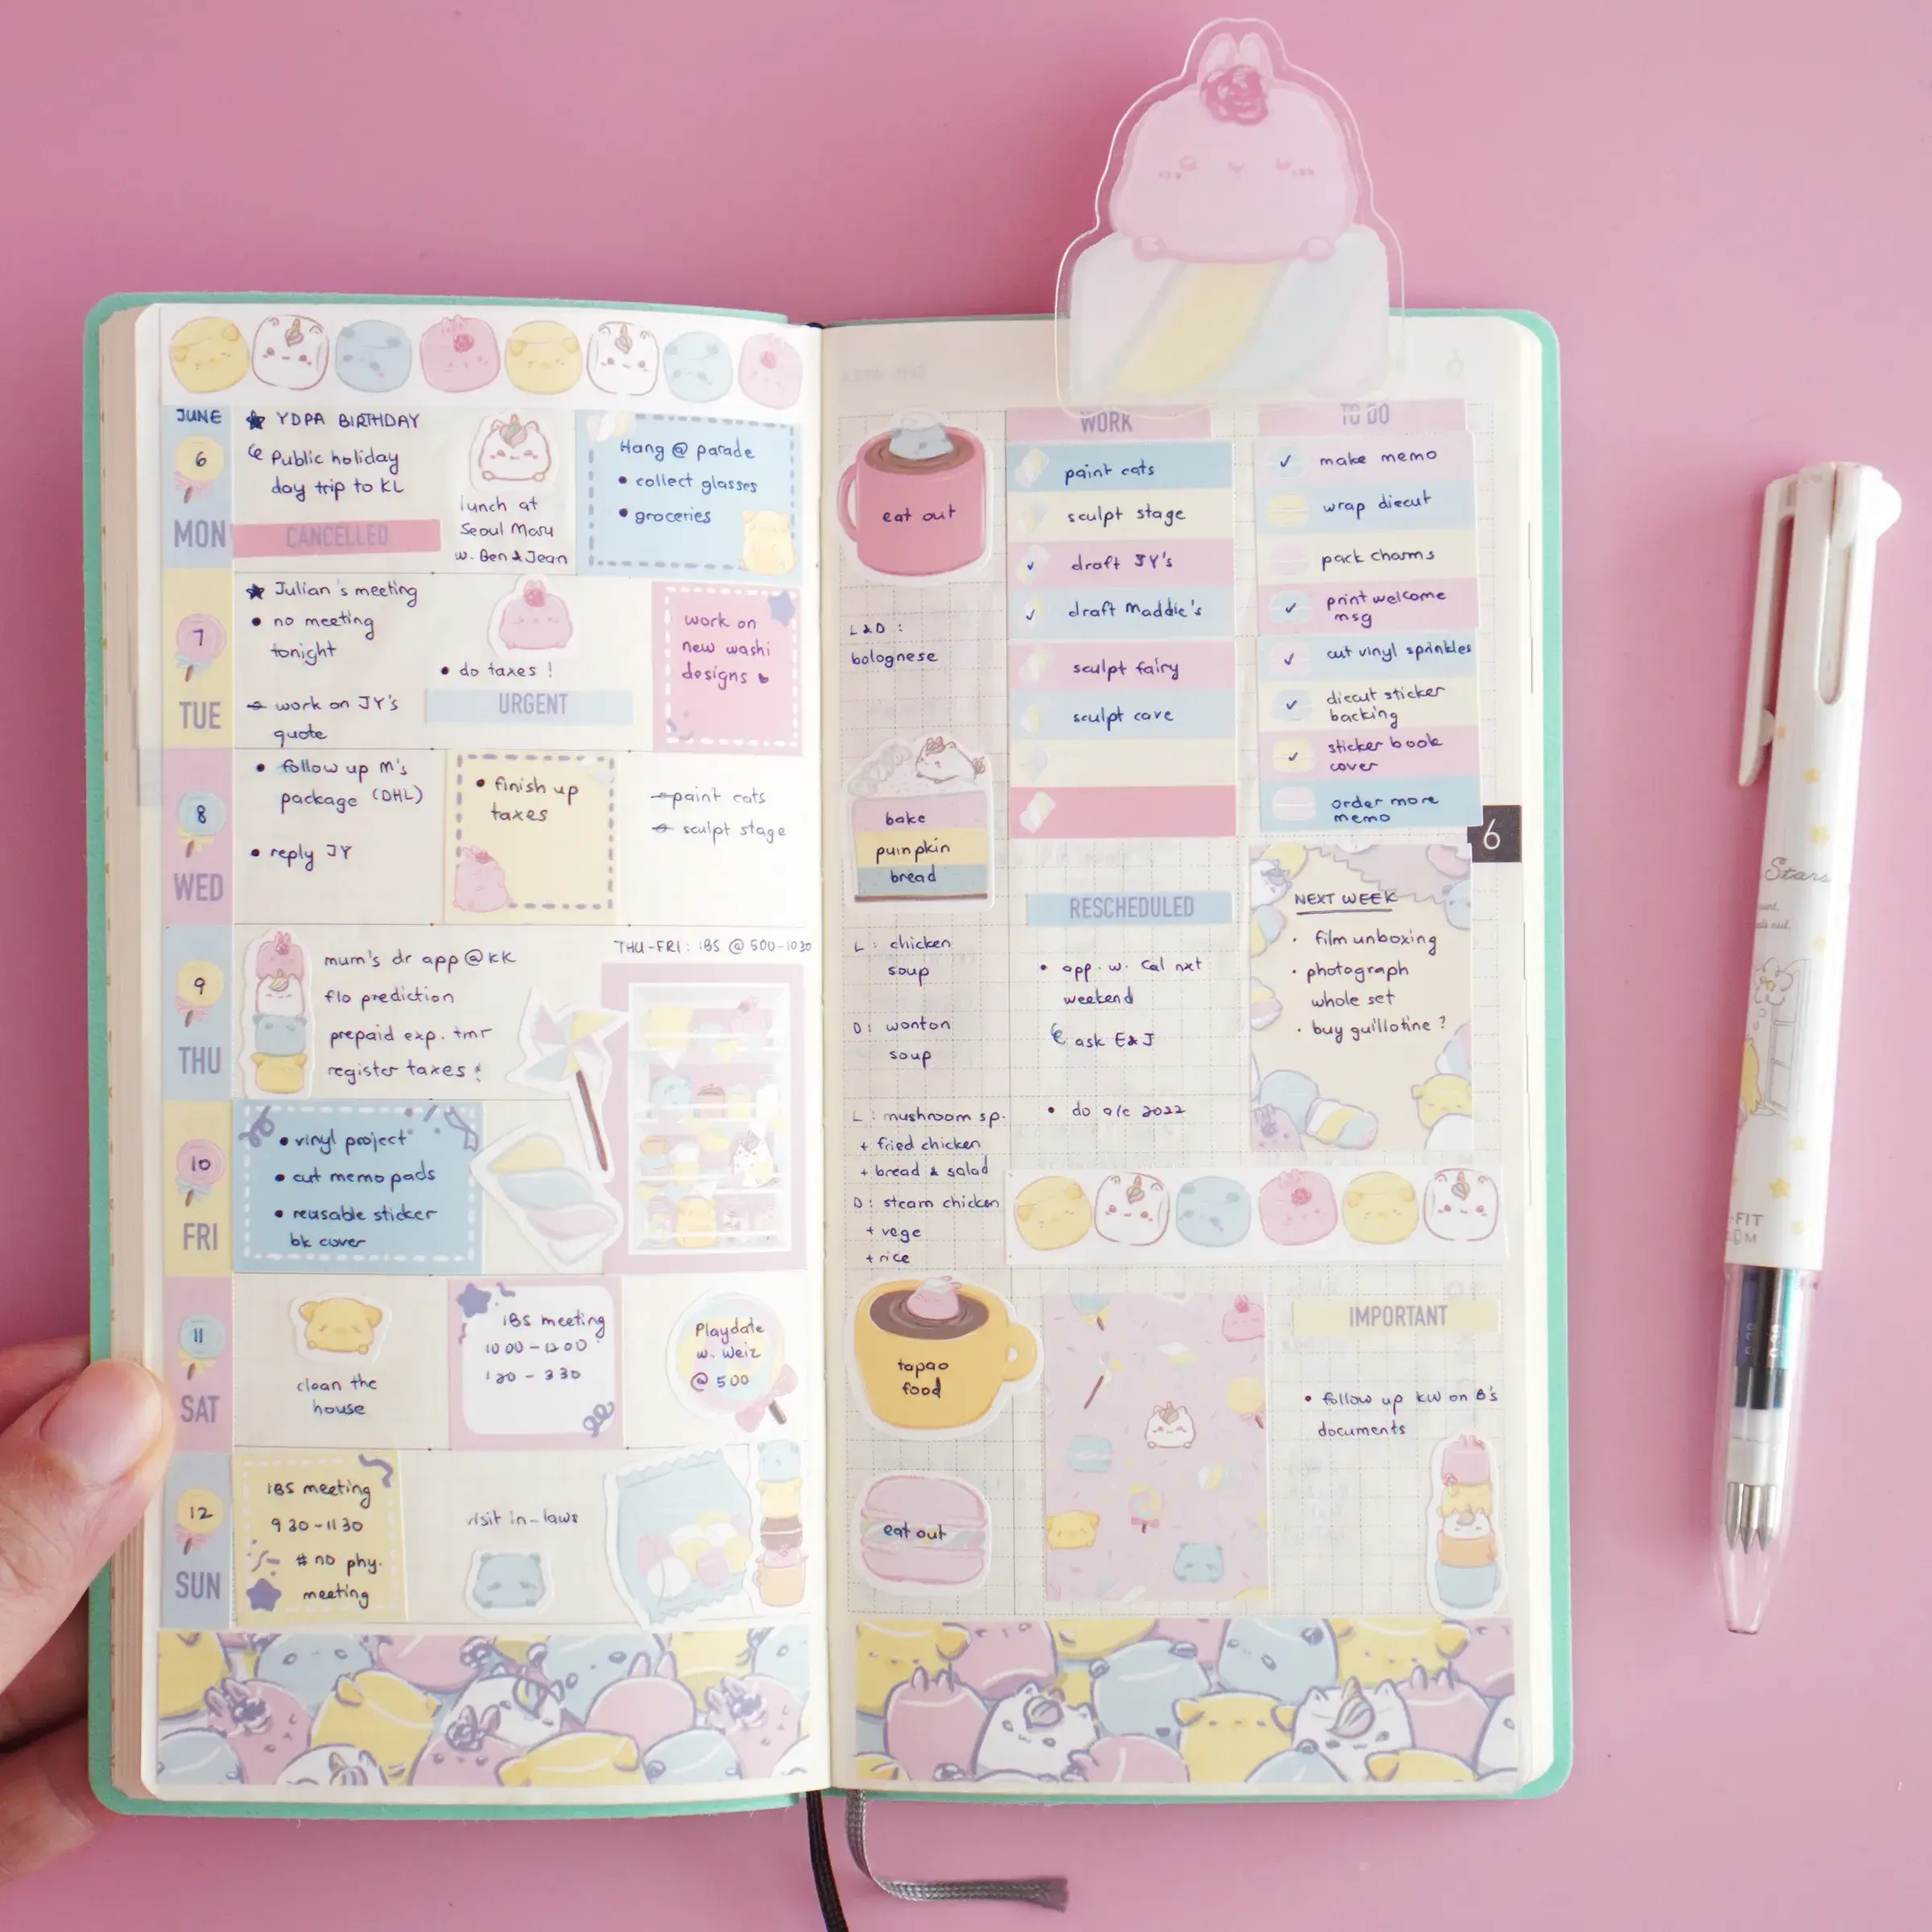 JUNE
6
MON
YDPA BIRTHDAY
Public holiday
day trip to KL
CANCELLED
lunch at
Seoul Maru
w. Ben & Jean
Hang @ parade
• collect glasses
• groceries
7
TUE
Julian's meeting
• no meeting
tonight
work on JY's
quote
• do taxes !
URGENT
work on
new washi
designs
8
WED
• follow up M's
package (DHL)
• reply JY
• finish up
taxes
paint cats
sculpt stage
9
THU
mum's dr app @ KK
flo prediction
prepaid exp. tmr
register taxes !
THU-FRI : IBS @ 500-1030
10
FRI
• vinyl project
• cut memo pads
• reusable sticker
bk cover
11
SAT
clean the
house
IBS meeting
1000-1200
130 - 330
Playdate
w. Weiz
@ 500
12
SUN
IBS meeting
930-1130
# no phy.
meeting
visit in-laws
eat out
L&D :
bolognese
bake
pumpkin
bread
L : chicken
soup
D : wonton
soup
L : mushroom sp.
+ fried chicken
+ bread & salad
D : steam chicken
+ vege
+ rice
tapao
food
eat out
WORK
paint cats
sculpt stage
✓ draft JY's
✓ draft Maddie's
sculpt fairy
sculpt cave
TO DO
✓ make memo
wrap diecut
pack charms
✓ print welcome
msg
✓ cut vinyl sprinkles
✓ diecut sticker
backing
✓ sticker book
cover
order more
memo
6
RESCHEDULED
• app. w. Cal nxt
weekend
ask E & J
• do a/c 2022
NEXT WEEK
• film unboxing
• photograph
whole set
• buy guillotine ?
IMPORTANT
• follow up KW on B's
documents
Stars
-FIT